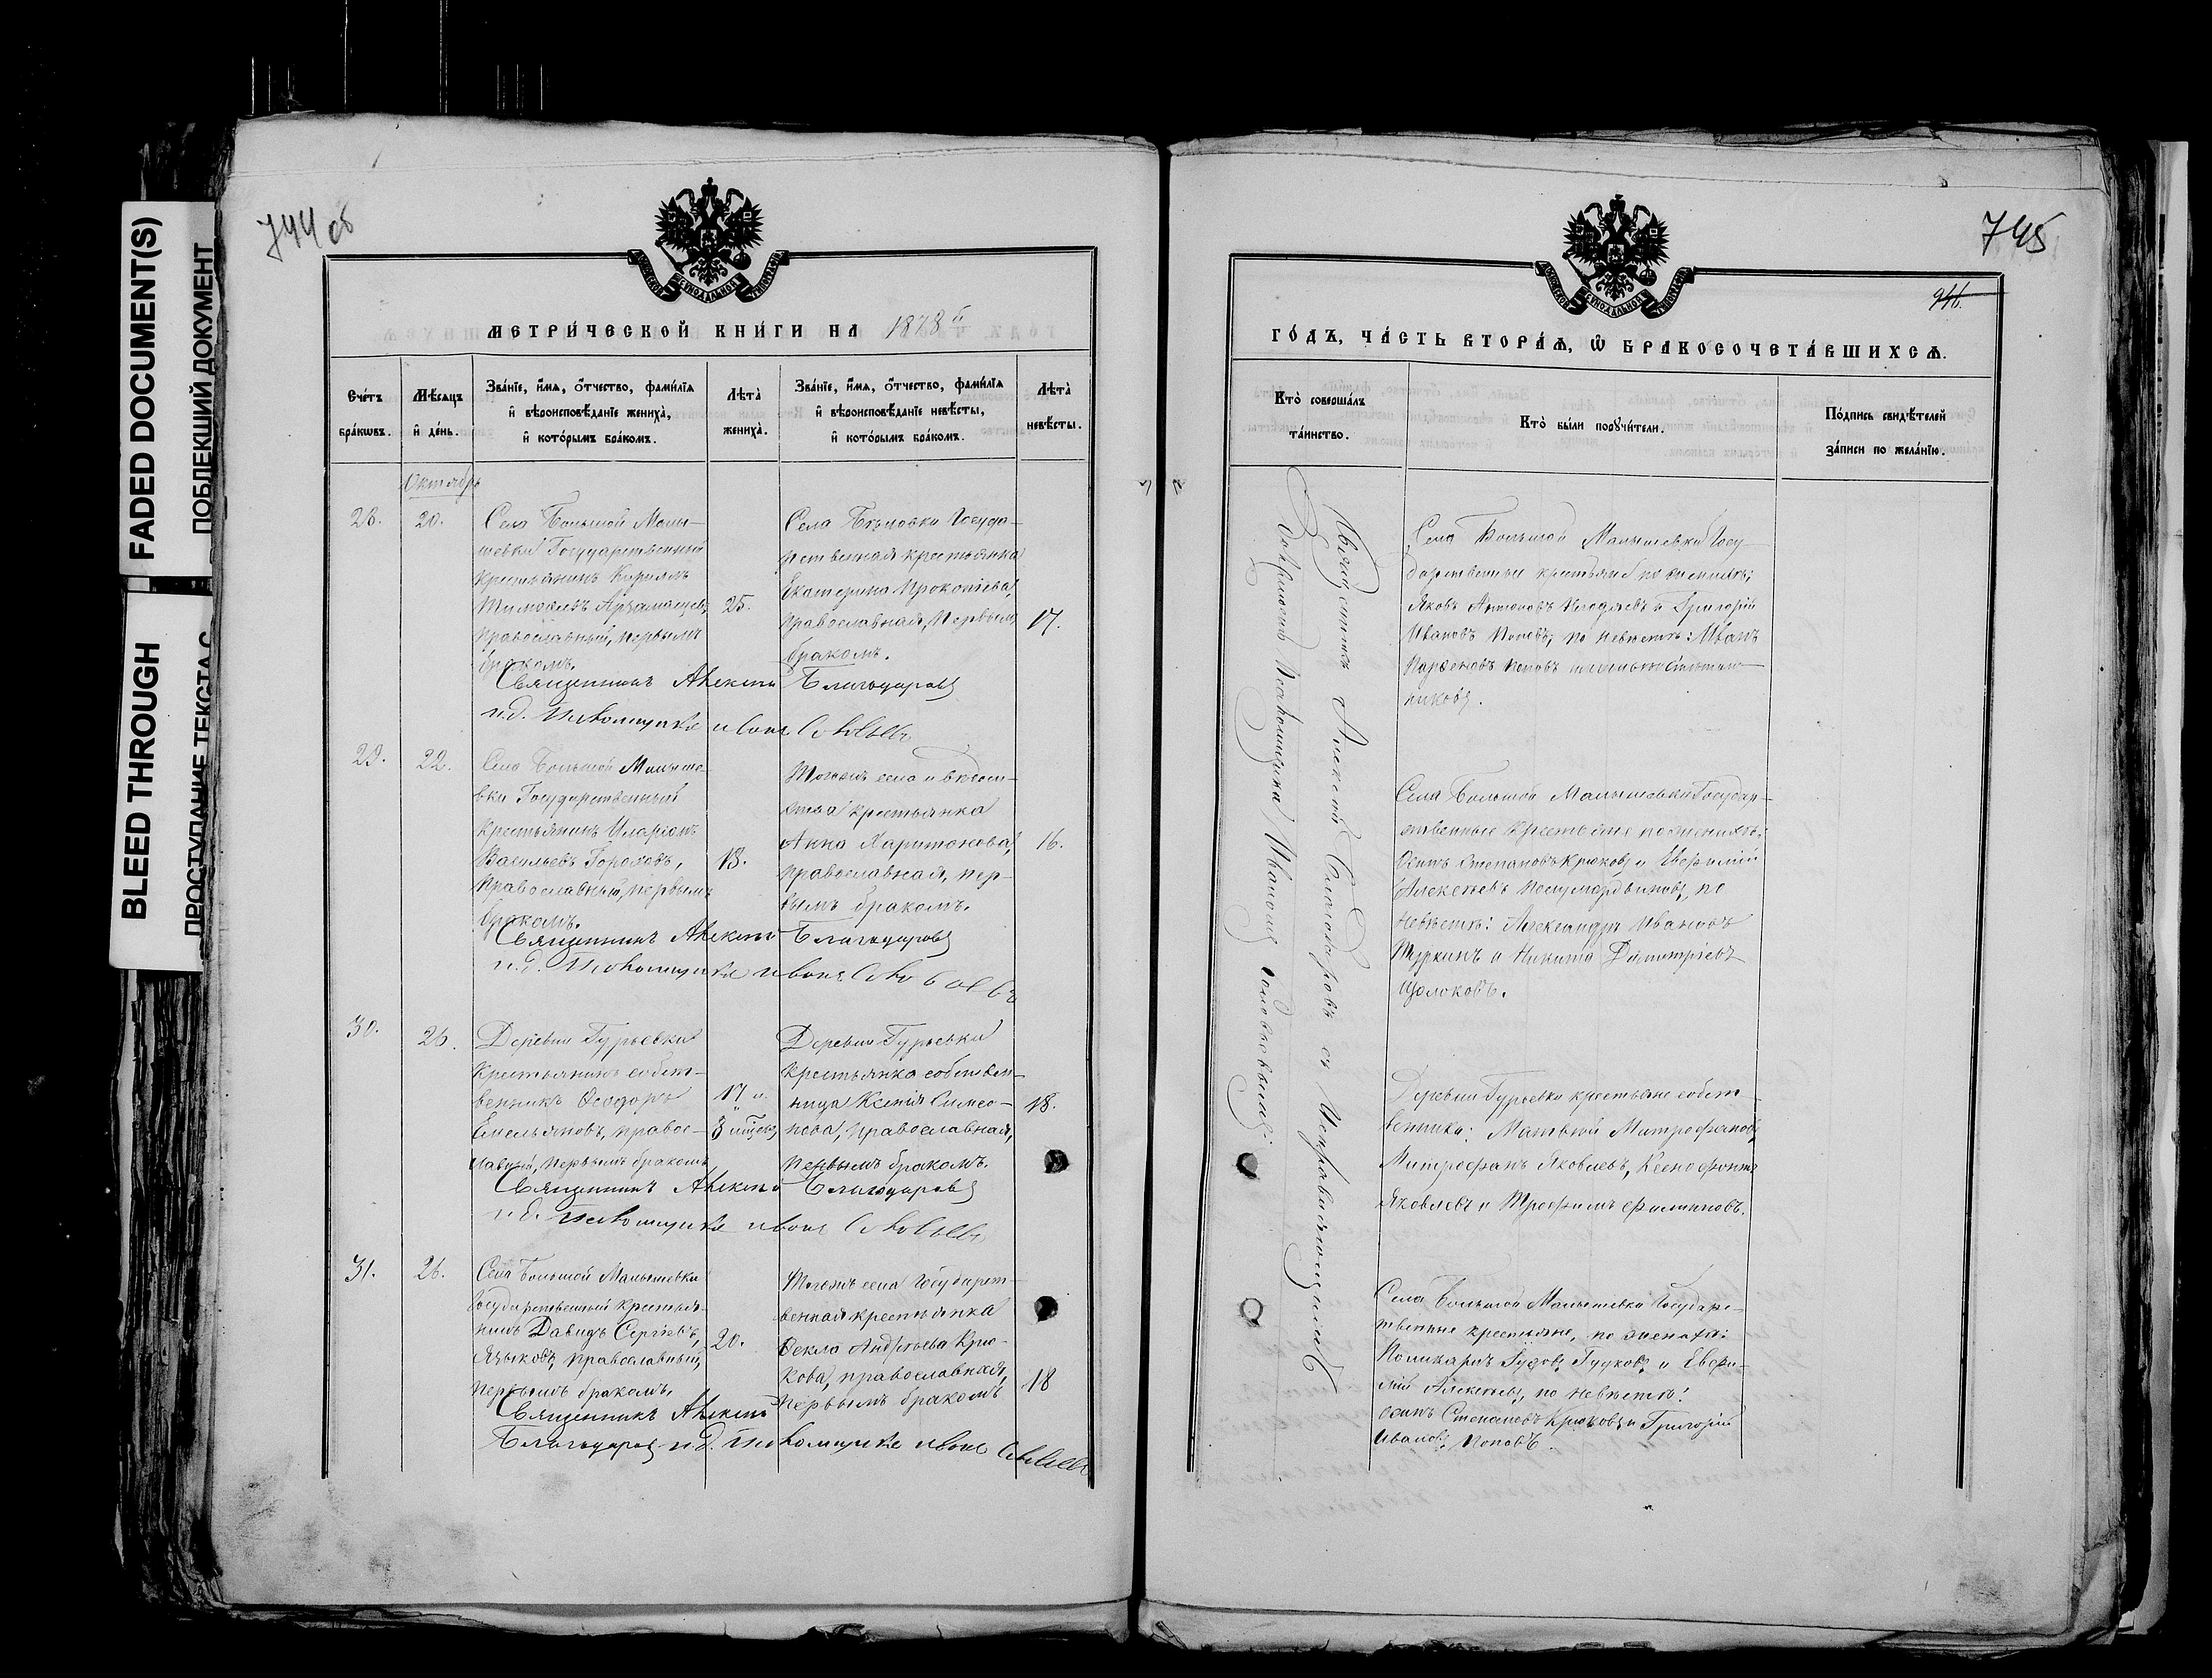 FADED DOCUMENT(S)
ПОБЛЕКШИЙ ДОКУМЕНТ
BLEED THROUGH
ПРОСТУПАНИЕ ТЕКСТА С
744 об
МЕТРИ́ЧЕСКОЙ КНИ́ГИ НА 1878 й
Сче́тъ бра́кωвъ.
Мѣ́сяцъ и҆ де́нь.
Зва́нїе, и҆́мя, ѻ҆́тчество, фами́лїя
и҆ вѣроисповѣ́данїе жениха̀,
и҆ кото́рымъ бра́комъ.
Лѣта̀ жениха̀.
Зва́нїе, и҆́мя, ѻ҆́тчество, фами́лїя
и҆ вѣроисповѣ́данїе невѣ́сты,
и҆ кото́рымъ бра́комъ.
Лѣта̀ невѣ́сты.
Октябрь
28.
20.
Села Большой Малы-
шевки Государственный
крестьянинъ Кириллъ
Тимоѳеевъ Арзамасцевъ,
православный, первымъ
бракомъ.
25.
Села Государ-
ственная крестьянка
Екатерина Прокопіева,
православная, первымъ
бракомъ.
17.
Священникъ Алексій Благодаровъ
и.д. Псаломщика Иванъ
29.
22.
Села Большой Малыше-
вки Государственный
крестьянинъ Иларіонъ
Васильевъ Гороховъ,
православный, первымъ
бракомъ.
18.
Тогожъ села и вѣдом-
ства крестьянка
Анна Харитонова,
православная, пер-
вымъ бракомъ.
16.
Священникъ Алексій Благодаровъ
и.д. Псаломщика Иванъ
30.
26.
Деревни Гурьевки
крестьянинъ собст-
венникъ Ѳеодоръ
Емельяновъ, правос-
лавный, первымъ бракомъ
17 и
8 мѣсяц.
Деревни Гурьевки
крестьянка собствен-
ница Ксенія Симео-
нова, православная,
первымъ бракомъ.
18.
Священникъ Алексій Благодаровъ
и.д. Псаломщика Иванъ
31.
26.
Села Большой Малышевки
Государственный крестья-
нинъ Давидъ Сергіевъ,
Языковъ, православный,
первымъ бракомъ.
20.
Тогожъ села Государст-
венная крестьянка
Ѳекла Андреева Крю-
кова, православная,
первымъ бракомъ
18
Священникъ Алексій
Благодаровъ и.д. Псаломщика Иванъ
745
946.
ГО́ДЪ, ЧА́СТЬ ВТОРА́Я, Ѡ БРАКОСОЧЕТА́ВШИХСЯ.
Кто̀ соверша́лъ
та́инство.
Кто̀ бы́ли порꙋчи́тели.
По́дпись свидѣ́телей
за́писи по жела́нїю.
Священникъ Алексій Благодаровъ съ Исправляющимъ
должность Псаломщика Иваномъ
Села Большой Малышевки Госу-
дарственные крестьяне по женихѣ:
Яковъ Антоновъ и Григорій
Ивановъ Поповъ; по невѣстѣ: Иванъ
Парѳеновъ Поповъ
Села Большой Малышевки Государ-
ственные крестьяне по женихѣ:
Осипъ Степановъ Крюковъ и Евфимій
Алексеевъ Полумордвиновъ, по
невѣстѣ: Александръ Ивановъ
Туркинъ и Никита Димитріевъ
Щелоковъ.
Деревни Гурьевки крестьяне собст-
венники: Матвей Митрофановъ,
Митрофанъ Яковлевъ, Ксенофонтъ
Яковлевъ и Трофимъ Филиповъ.
Села Большой Малышевки Государс-
твенные крестьяне, по женихѣ:
Поликарпъ Гудковъ и Евфи-
мій Алексеевъ, по невѣстѣ:
Осипъ Степановъ Крюковъ и Григорій
Ивановъ Поповъ.